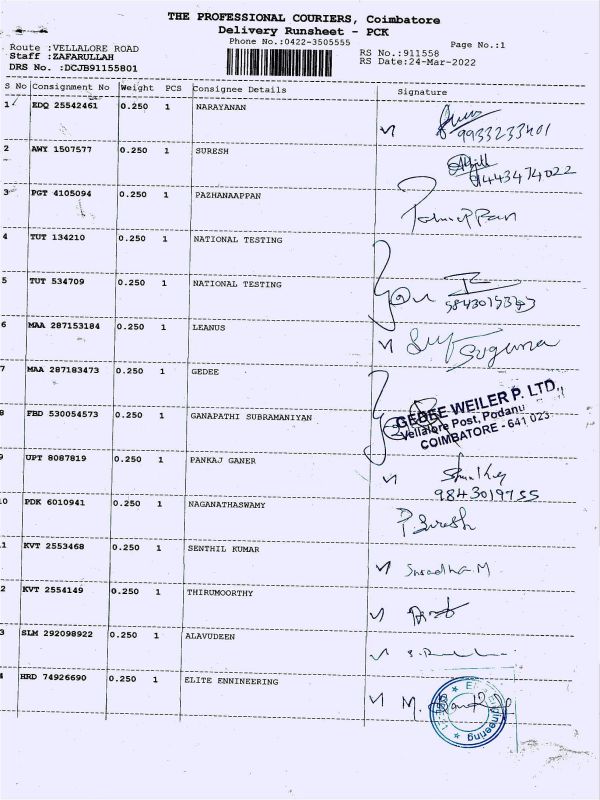 THE PROFESSIONAL COURIERS, Coimbatore
Delivery Runsheet - PCK
Phone No.:0422-3505555
Page No.:1
Route :VELLALORE ROAD
Staff :ZAFARULLAH
DRS No. :DCJB91155801
RS No.:911558
RS Date:24-Mar-2022
S No Consignment No Weight PCS Consignee Details Signature
1 EDQ 25542461 0.250 1 NARAYANAN
9933233401
2 AWY 1507577 0.250 1 SURESH
9443474022
3 PGT 4105094 0.250 1 PAZHANAAPPAN
4 TUT 134210 0.250 1 NATIONAL TESTING
5 TUT 534709 0.250 1 NATIONAL TESTING
6 MAA 287153184 0.250 1 LEANUS
Suguna
7 MAA 287183473 0.250 1 GEDEE
GEDEE WEILER P. LTD.,
Vellalore Post, Podanu
COIMBATORE - 641 023
8 FBD 530054573 0.250 1 GANAPATHI SUBRAMANIYAN
9 UPT 8087819 0.250 1 PANKAJ GANER
9843019755
0 PDK 6010941 0.250 1 NAGANATHASWAMY
P. Suresh
1 KVT 2553468 0.250 1 SENTHIL KUMAR
2 KVT 2554149 0.250 1 THIRUMOORTHY
3 SLM 292098922 0.250 1 ALAVUDEEN
4 HRD 74926690 0.250 1 ELITE ENNINEERING